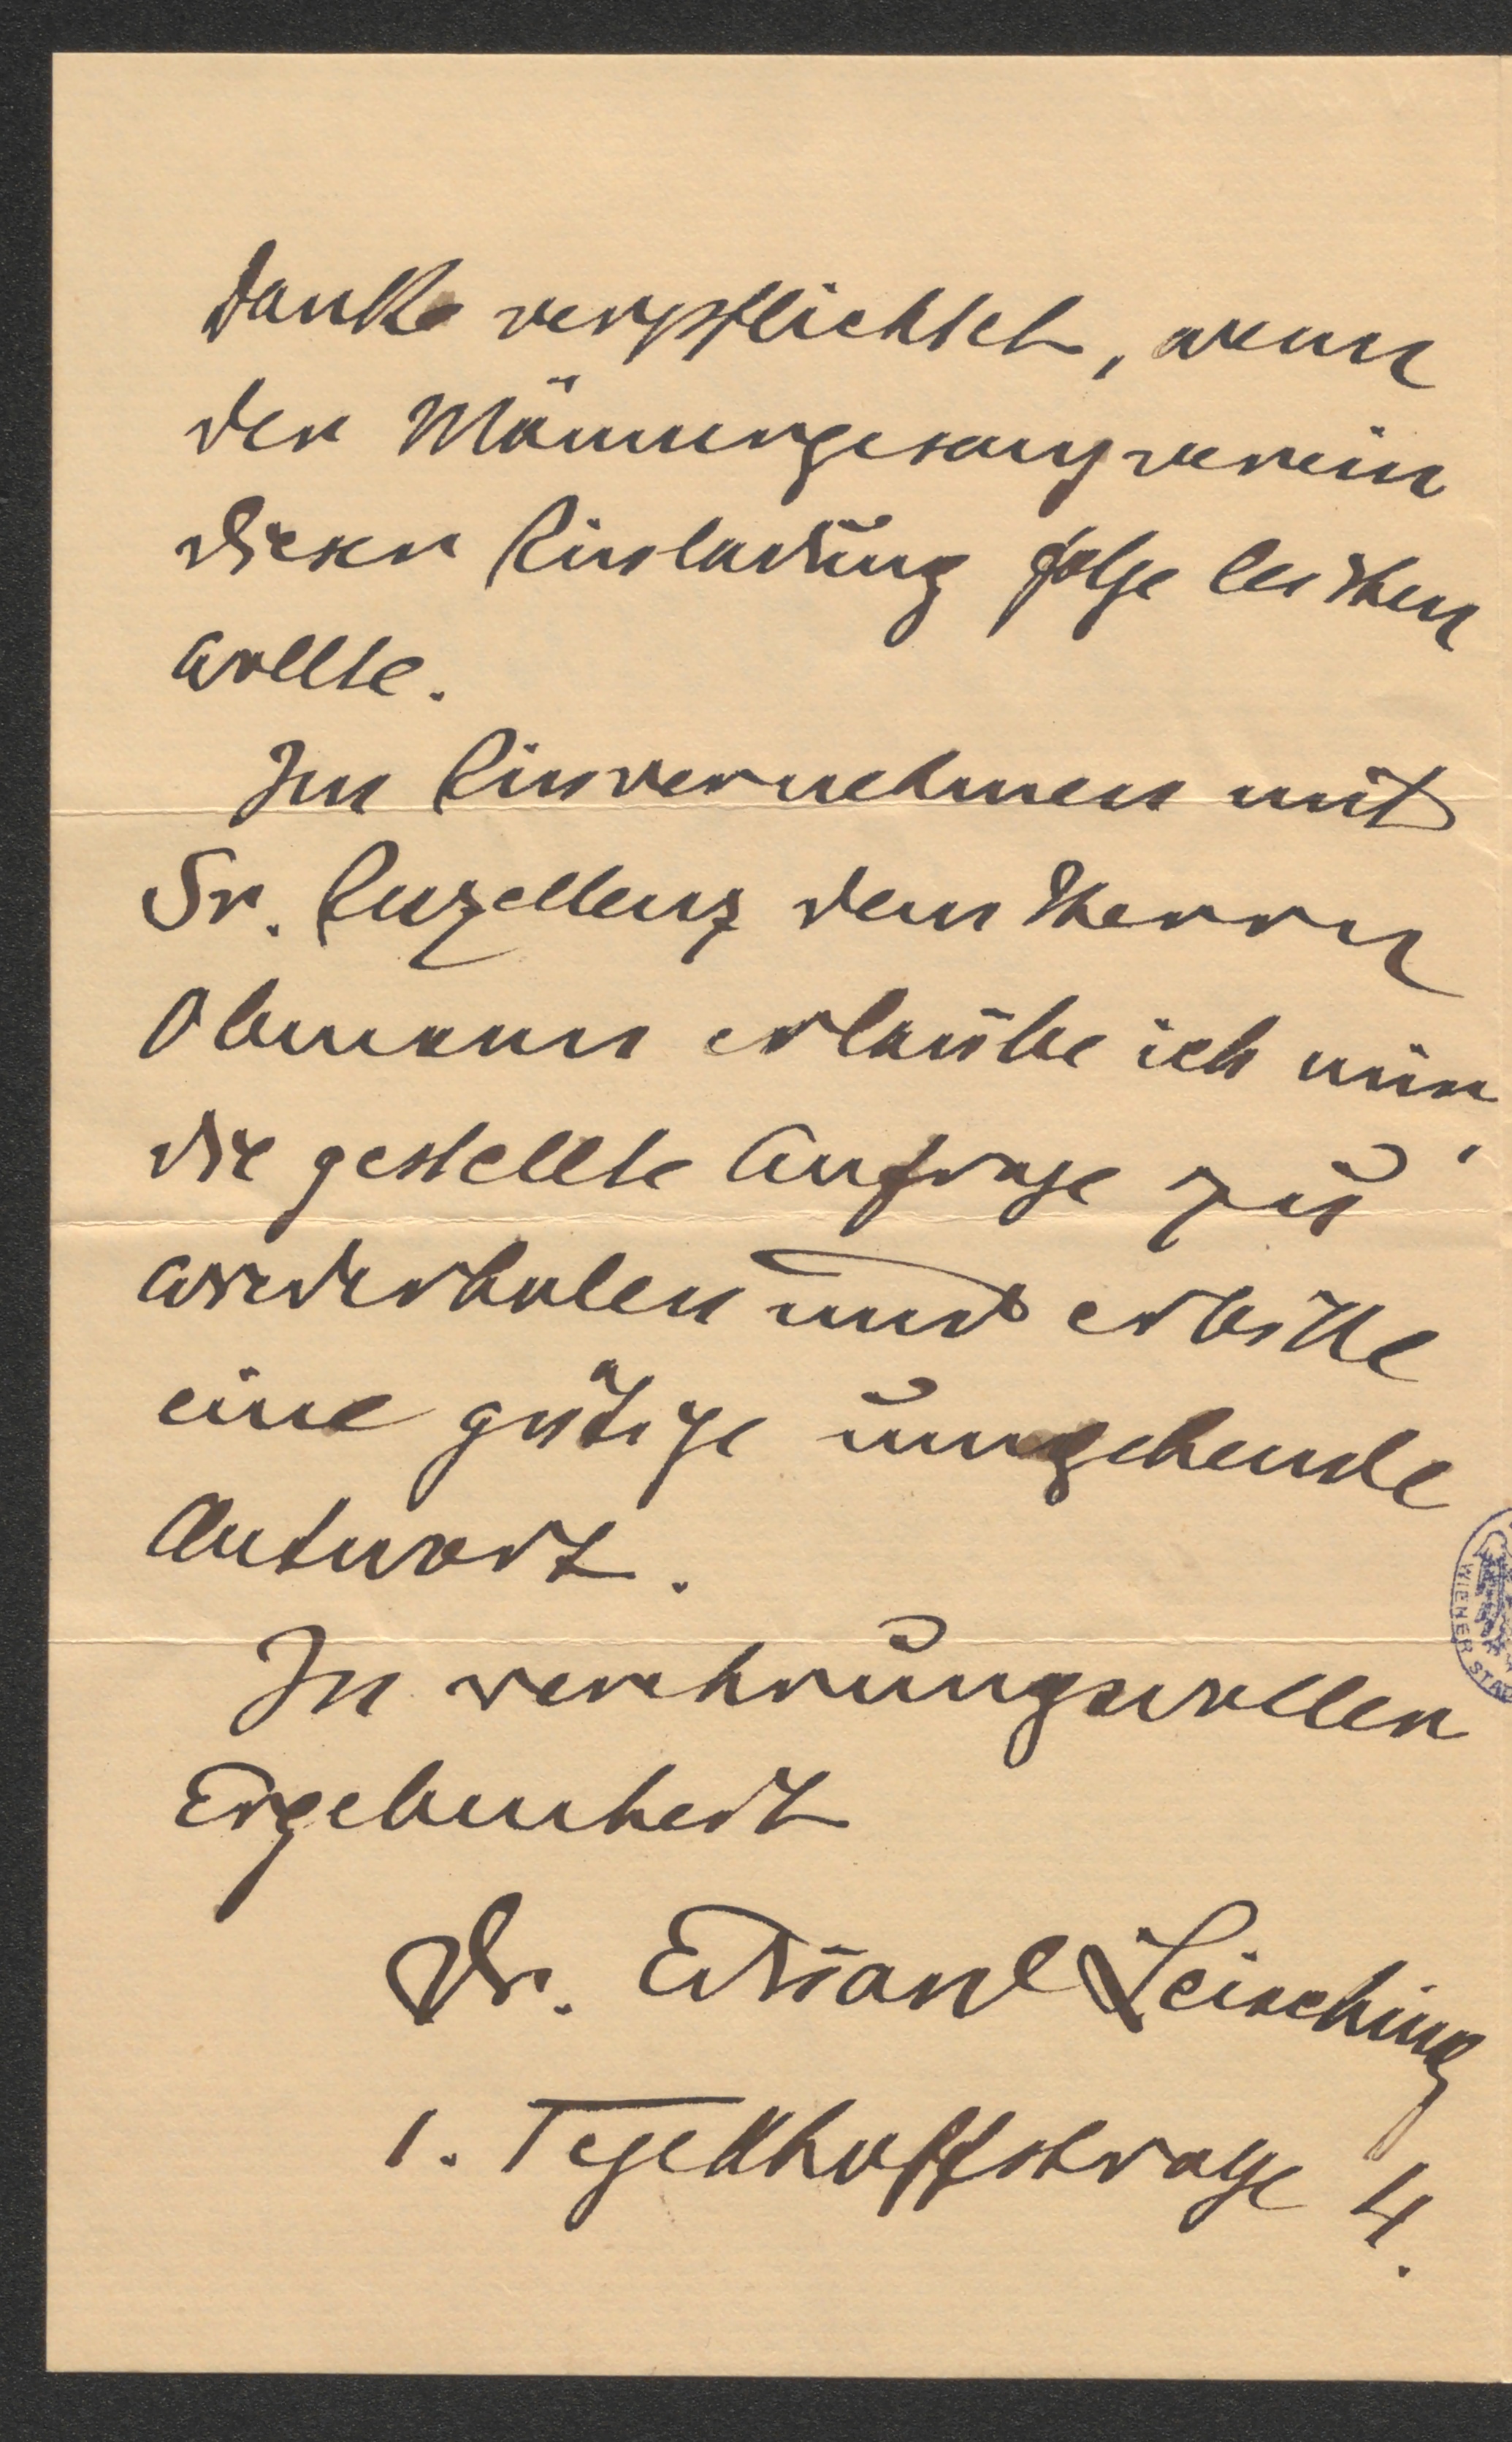 Danke verpflichtet, wenn
der Männergesangverein
dieser Einladung folge leisten
wollte.
Im Einvernehmen mit
Sr. Exzellenz dem Herrn
Obmann erlaube ich mir,
die gestellte Anfrage zu
wiederholen und erbitte
eine gütige umgehende
Antwort.
In verehrungsvoller
Ergebenheit
Dr. Eduard Leisching
1. Tegetthoffstrasse 4.
WIENER STA